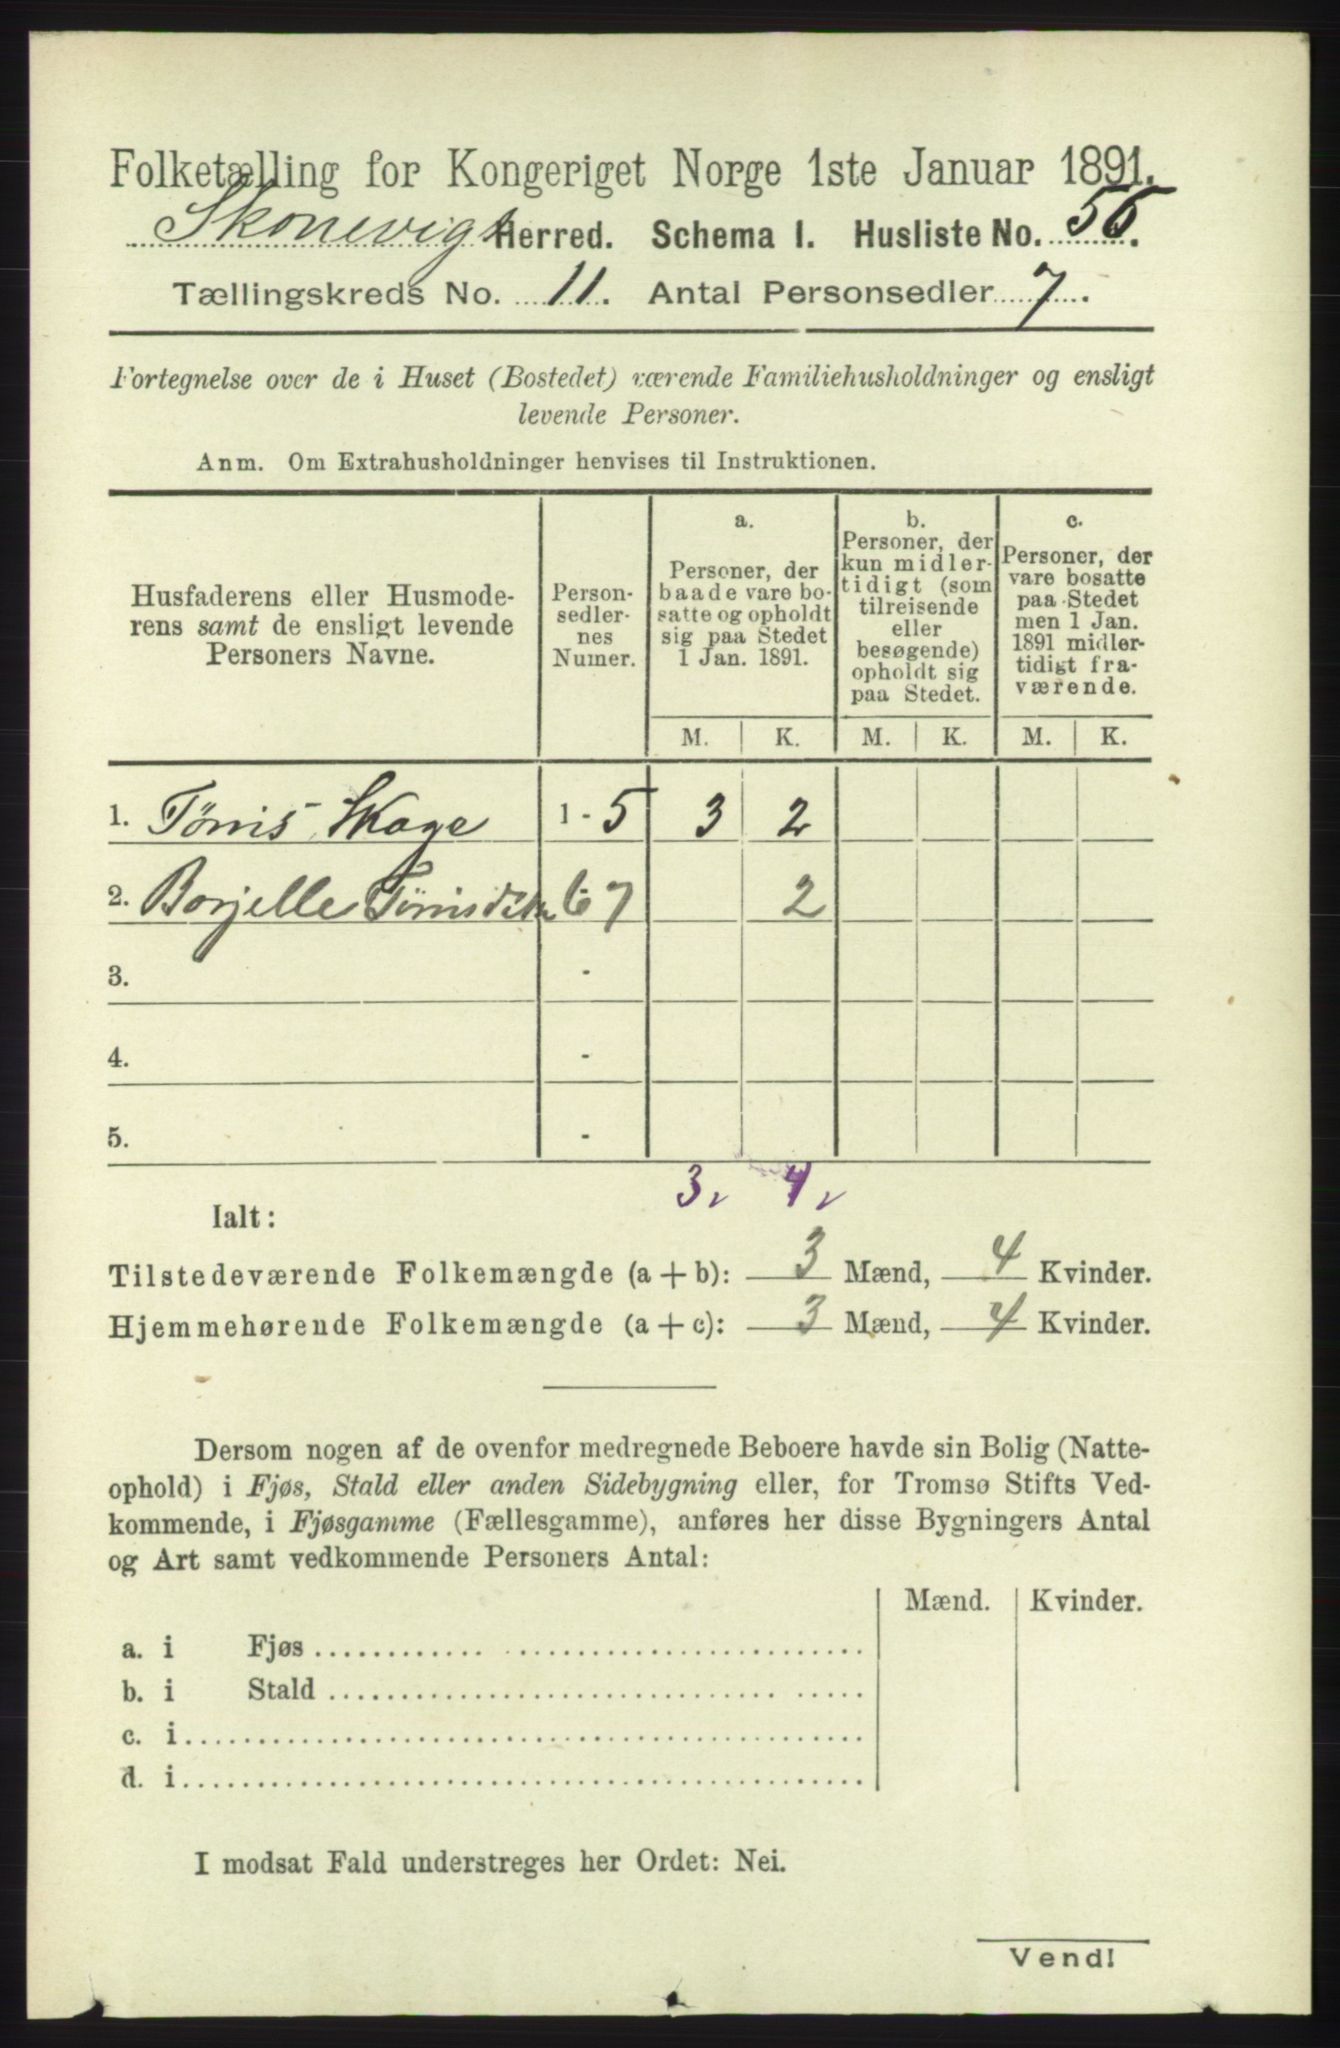 Folketælling for Kongeriget Norge 1ste Januar 1891.
Skonevigs Herred. Schema I. Husliste No. 56.
Tællingskreds No. 11. Antal Personsedler 7.
Fortegnelse over de i Huset (Bostedet) værende Familiehusholdninger og ensligt
levende Personer.
Anm. Om Extrahusholdninger henvises til Instruktionen.
Husfaderens eller Husmode-
rens samt de ensligt levende
Personers Navne.
Person-
sedler-
nes
Numer.
a.
Personer, der
baade vare bo-
satte og opholdt
sig paa Stedet
1 Jan. 1891.
b.
Personer, der
kun midler-
tidigt (som
tilreisende
eller
besøgende)
opholdt sig
paa Stedet.
c.
Personer, der
vare bosatte
paa Stedet
men 1 Jan.
1891 midler-
tidigt fra-
værende.
M. K. M. K. M. K.
1. Tønis Skage 1 - 5 3 2
2. Borjelle Tønisdtr 6 - 7 2
3. -
4. -
5. -
3, 4,
Ialt:
Tilstedeværende Folkemængde (a + b): 3 Mænd, 4 Kvinder.
Hjemmehørende Folkemængde (a + c): 3 Mænd, 4 Kvinder.
Dersom nogen af de ovenfor medregnede Beboere havde sin Bolig (Natte-
ophold) i Fjøs, Stald eller anden Sidebygning eller, for Tromsø Stifts Ved-
kommende, i Fjøsgamme (Fællesgamme), anføres her disse Bygningers Antal
og Art samt vedkommende Personers Antal:
Mænd. Kvinder.
a. i Fjøs
b. i Stald
c. i
d. i
I modsat Fald understreges her Ordet: Nei.
Vend!